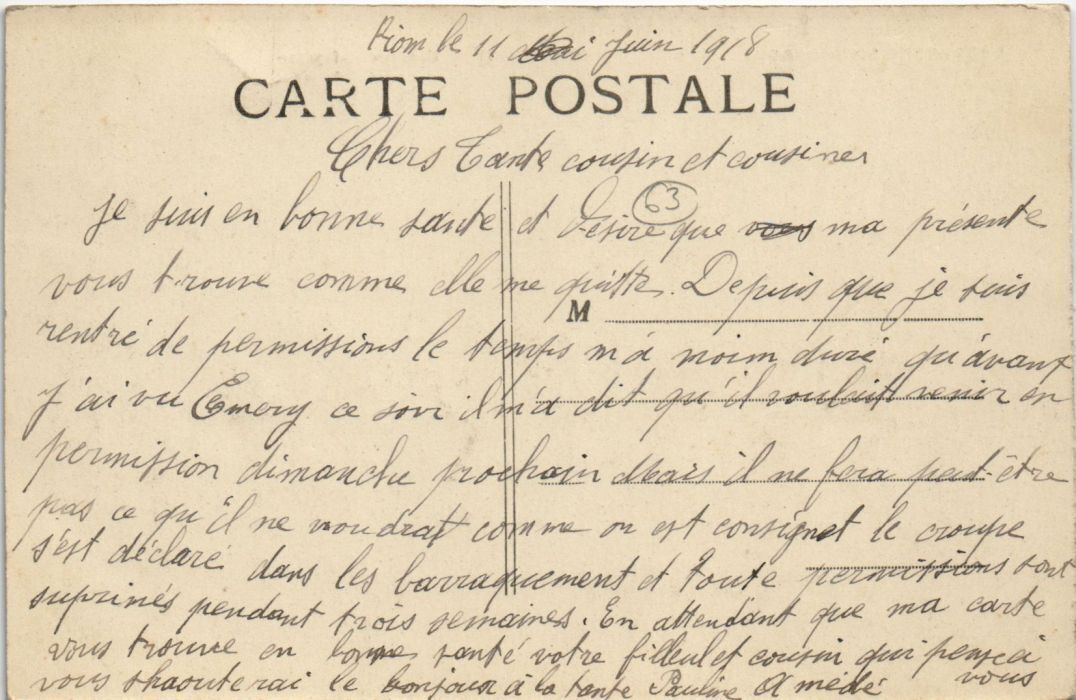 Riom le 11 Mai Juin 1918
CARTE POSTALE
Chers Tante cousin et cousines
63
Je suis en bonne sante et désire que vous ma présente
vous trouve comme elle me quitte. Depuis que je suis
M
rentré de permissions le temps m'a moim duré qu'avant
J'ai vu Emery ce soir il m'a dit qu'il voulait venir en
permission dimanche prochain Mais il ne fera peut-être
pas ce qu'il ne voudrat comme on est consignet le croupe
s'est déclaré dans les barraquement et toute permissions sont
suprinés pendant trois semaines. En attendant que ma carte
vous trouve en bonne santé votre filleul et cousin qui pense à
vous
vous shaouterai le bonjour à la tante Pauline Amédé